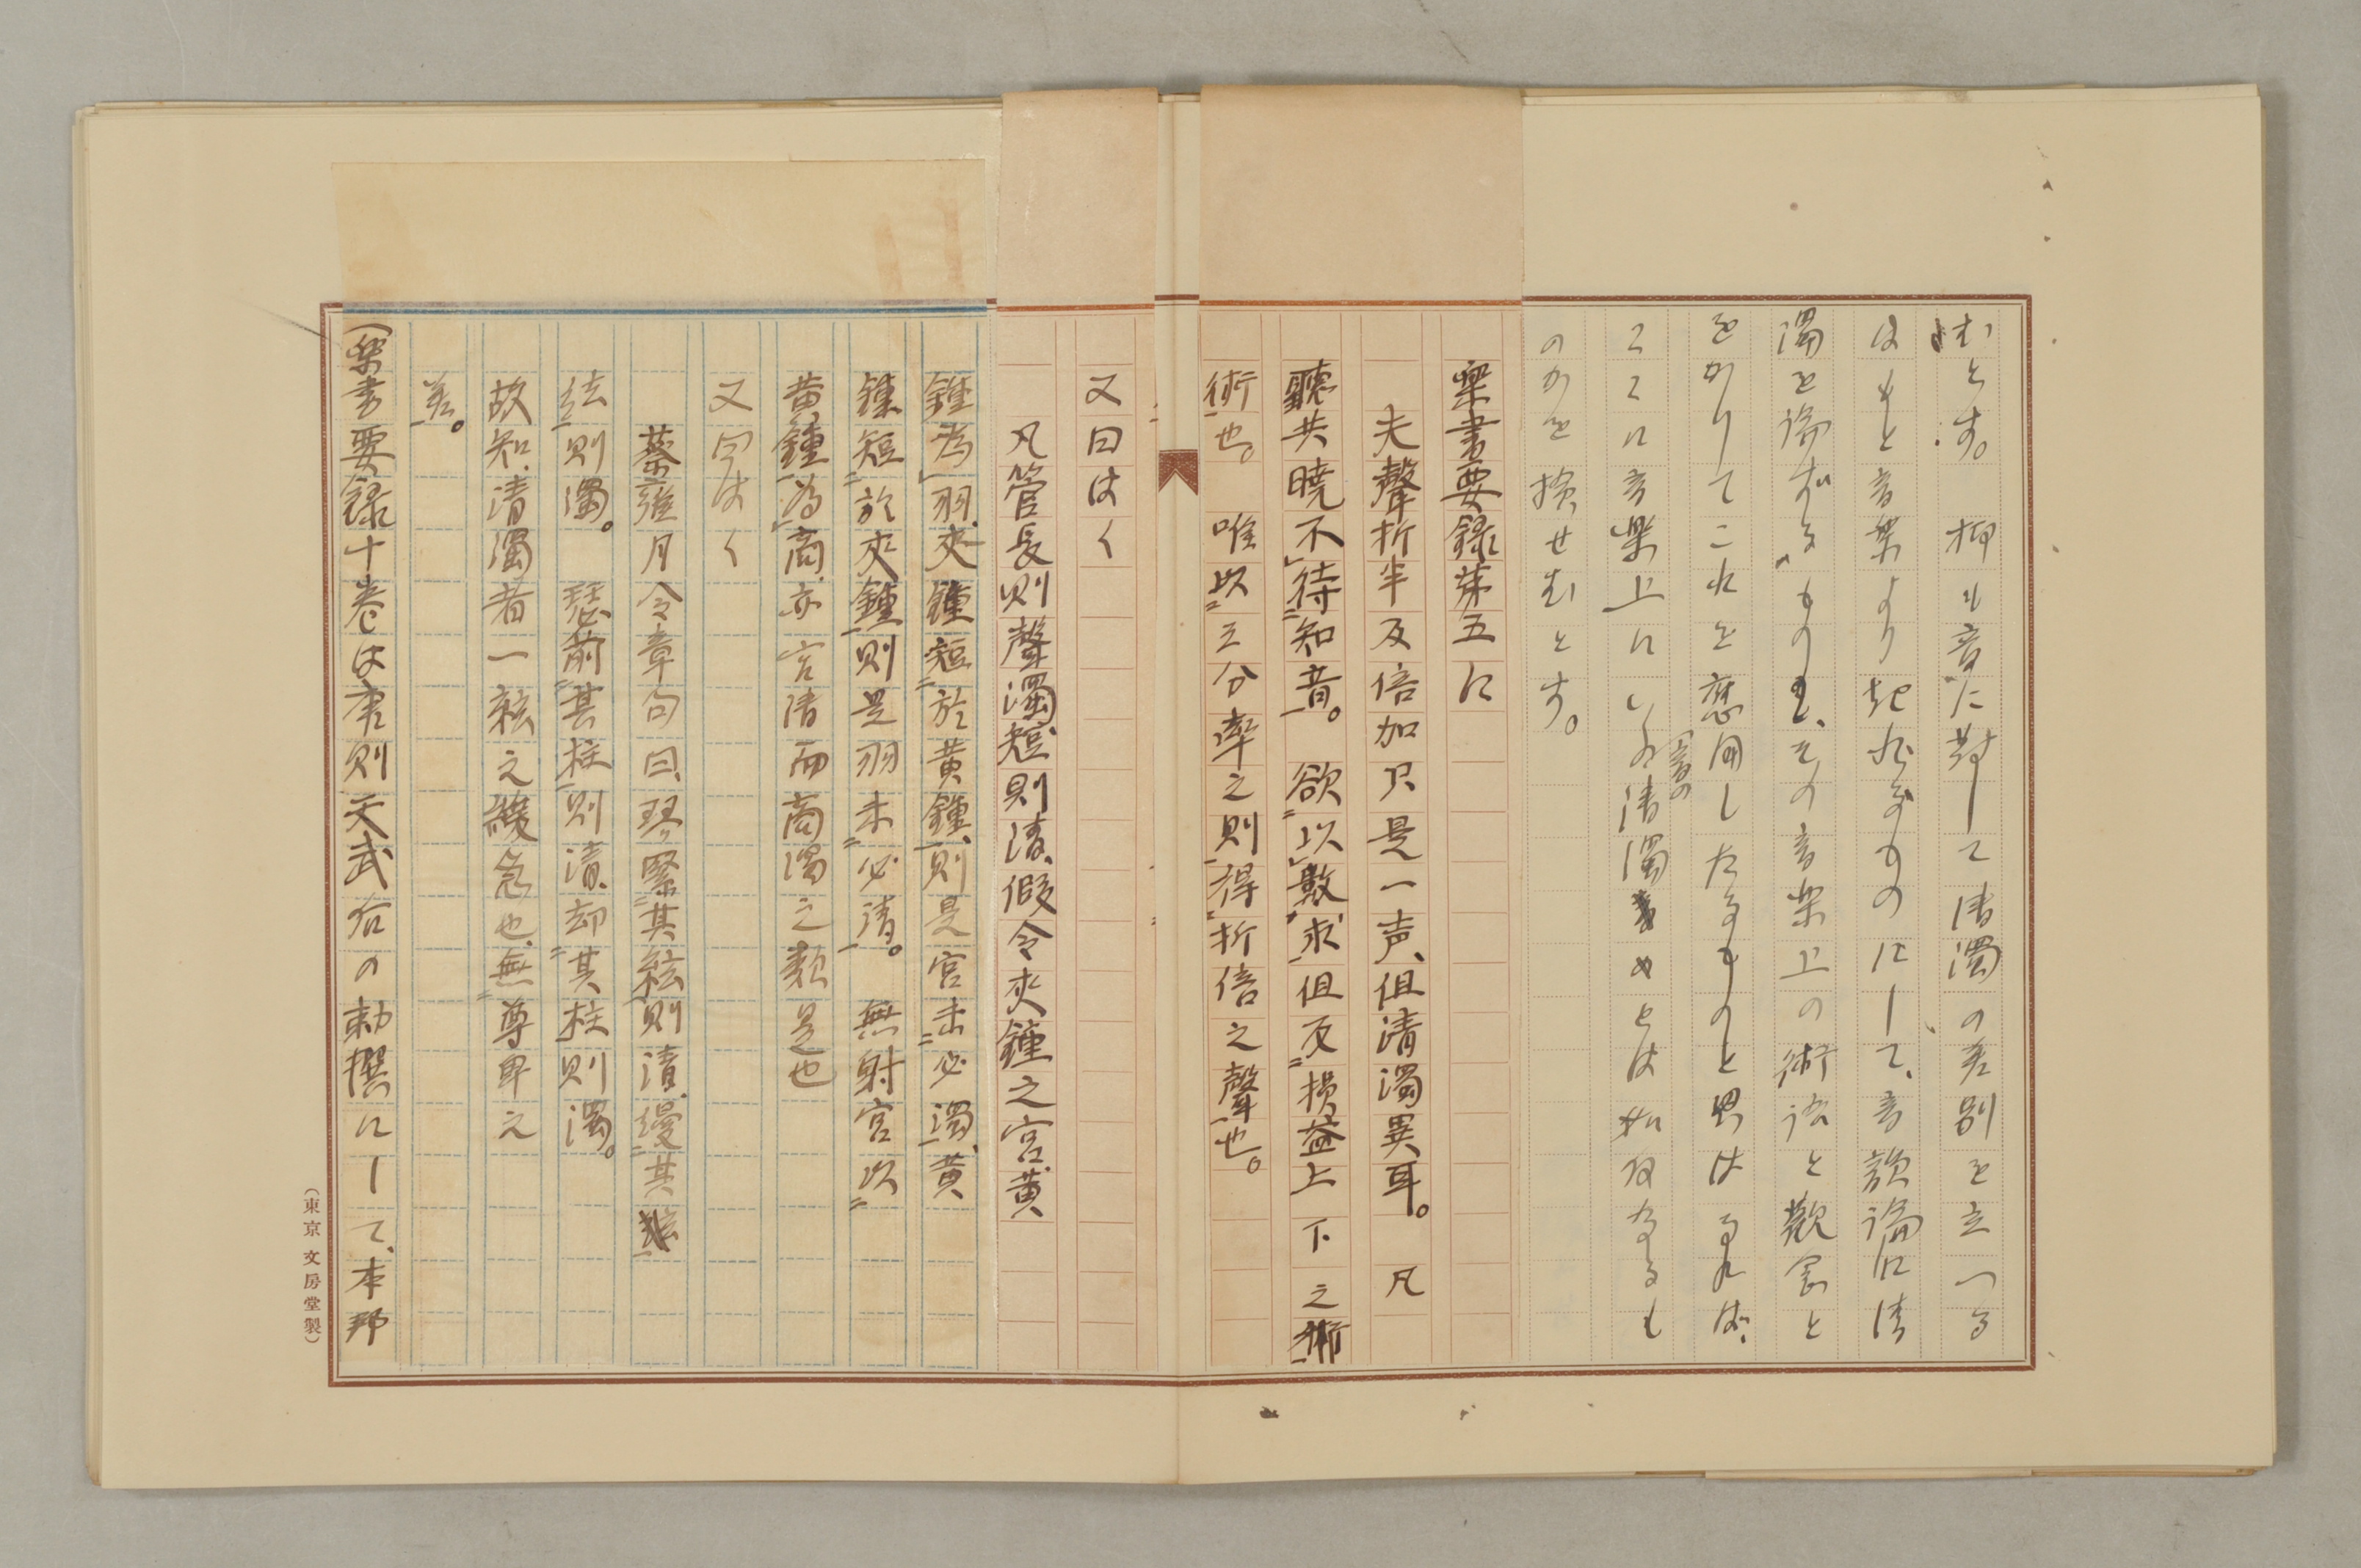 むとす。抑も音に対して清濁の差別を立つる
はもと音楽より起れるものにして、音韻論に清
濁を論ずるものも、その音楽上の術語と観念と
をかりてこれを應用したるものと思はるれば、
ここに音楽上にいふ清濁とは如何なるも
音の
のかを検せむとす。
樂書要録第五に
夫聲折半及倍加只是一声、但清濁異耳。凡
聽共曉不待知音。欲以數求但反損益上下之術
術也。唯以三分率之則得折倍之聲也。
又曰はく
凡管長則聲濁、短則清、假令夾鍾之宮、黄
鍾為羽、夾鍾短於黄鍾、則是宮未必濁、黄
鍾短於夾鍾則是羽未必清。無射宮以
黄鍾為商、亦宮清而商濁之類是也
又曰はく
蔡雍月令章句曰、琴緊其絃則清、縵其
絃則濁。瑟前其柱則清、却其柱則濁。
故知清濁者一絃之緩急也、無尊卑之
差。
(樂書要録十巻は唐則天武后の勅撰にして、本邦
(東京文房堂製)